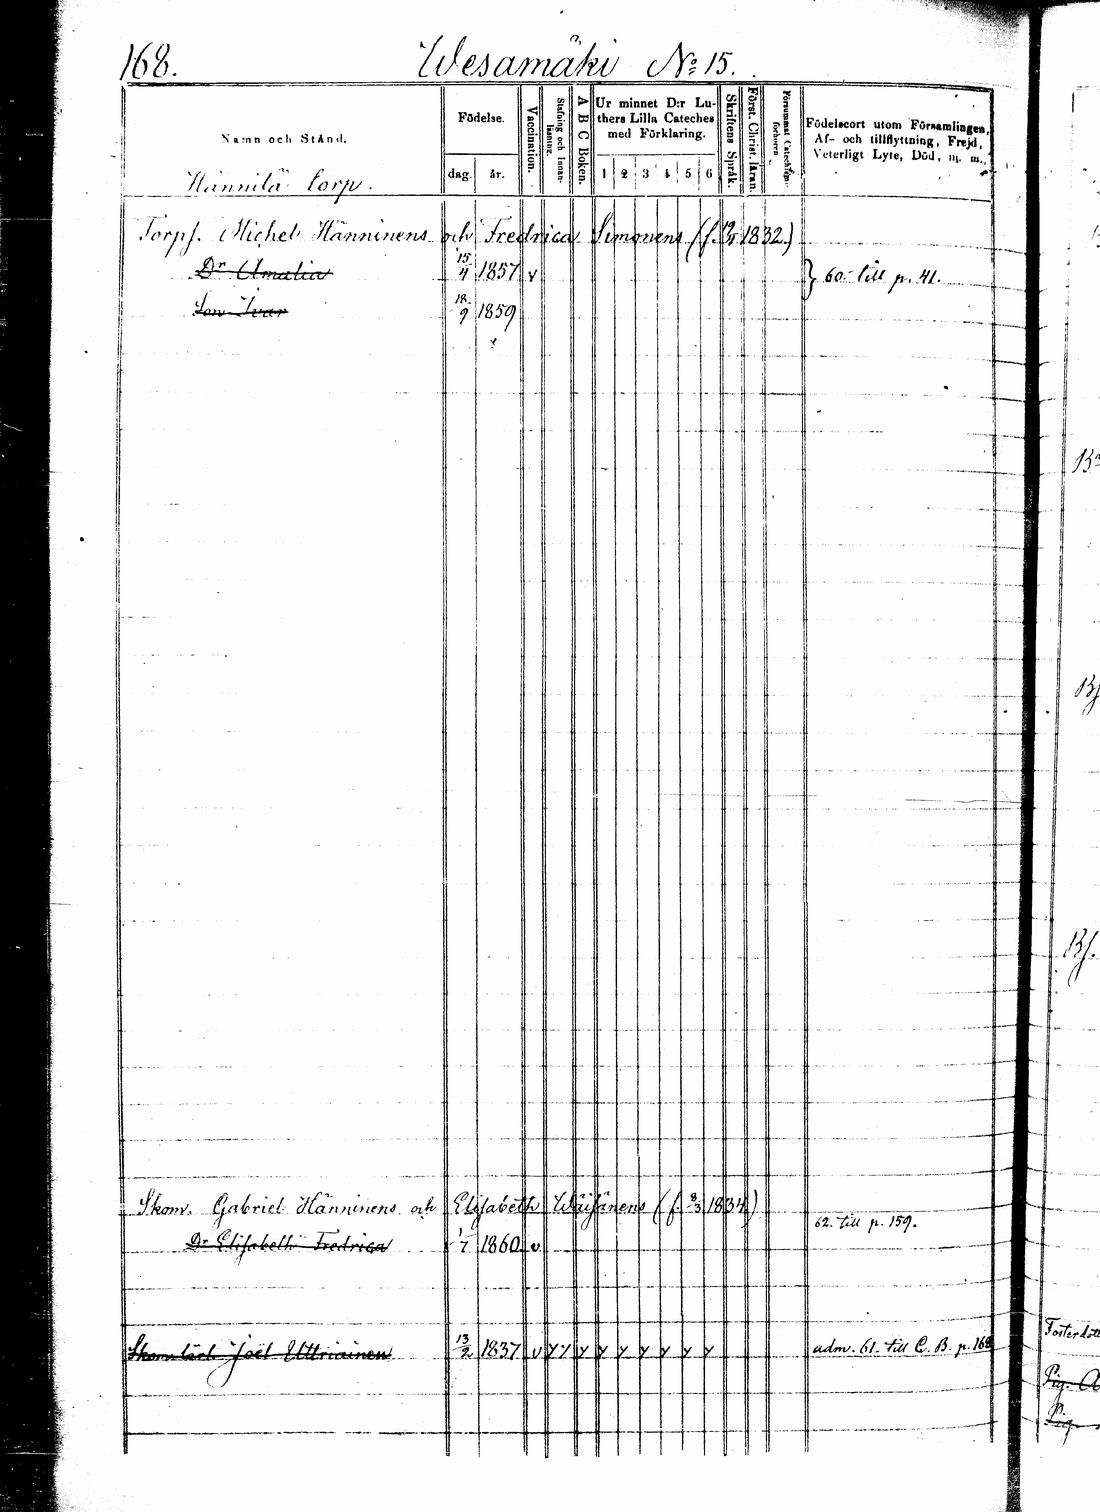 168. Wesamäki No 15.
Namn och Stånd.
Födelse.
dag. år.
Vaccination.
Stafning och Innanläsning.
A B C Boken.
Ur minnet D:r Luthers Lilla Cateches med Förklaring.
1 2 3 4 5 6
Skriftens Språk.
Först. Christ. läran.
Försummat Catechismi förhören
Födelseort utom Församlingen,
Af- och tillflyttning, Frejd,
Veterligt Lyte, Död, m. m.
Hännilä torp.
Torp. Michel Hänninens och Fredrica Simonens (f. 1832.)
Dr Amalia 15/4 1857 v } 60. till p. 41.
Son Ivar 18/9 1859
Skom. Gabriel Hänninens och Elisabeth Wäisänens (f. 8/3 1834.)
62. till p. 159.
Dr Elisabeth Fredrica 1/7 1860 v
Skom. lärl. Joël Uttriainen 13/2 1837 v y y y y y y y y y adm. 61. till C. B. p. 168
Pig.